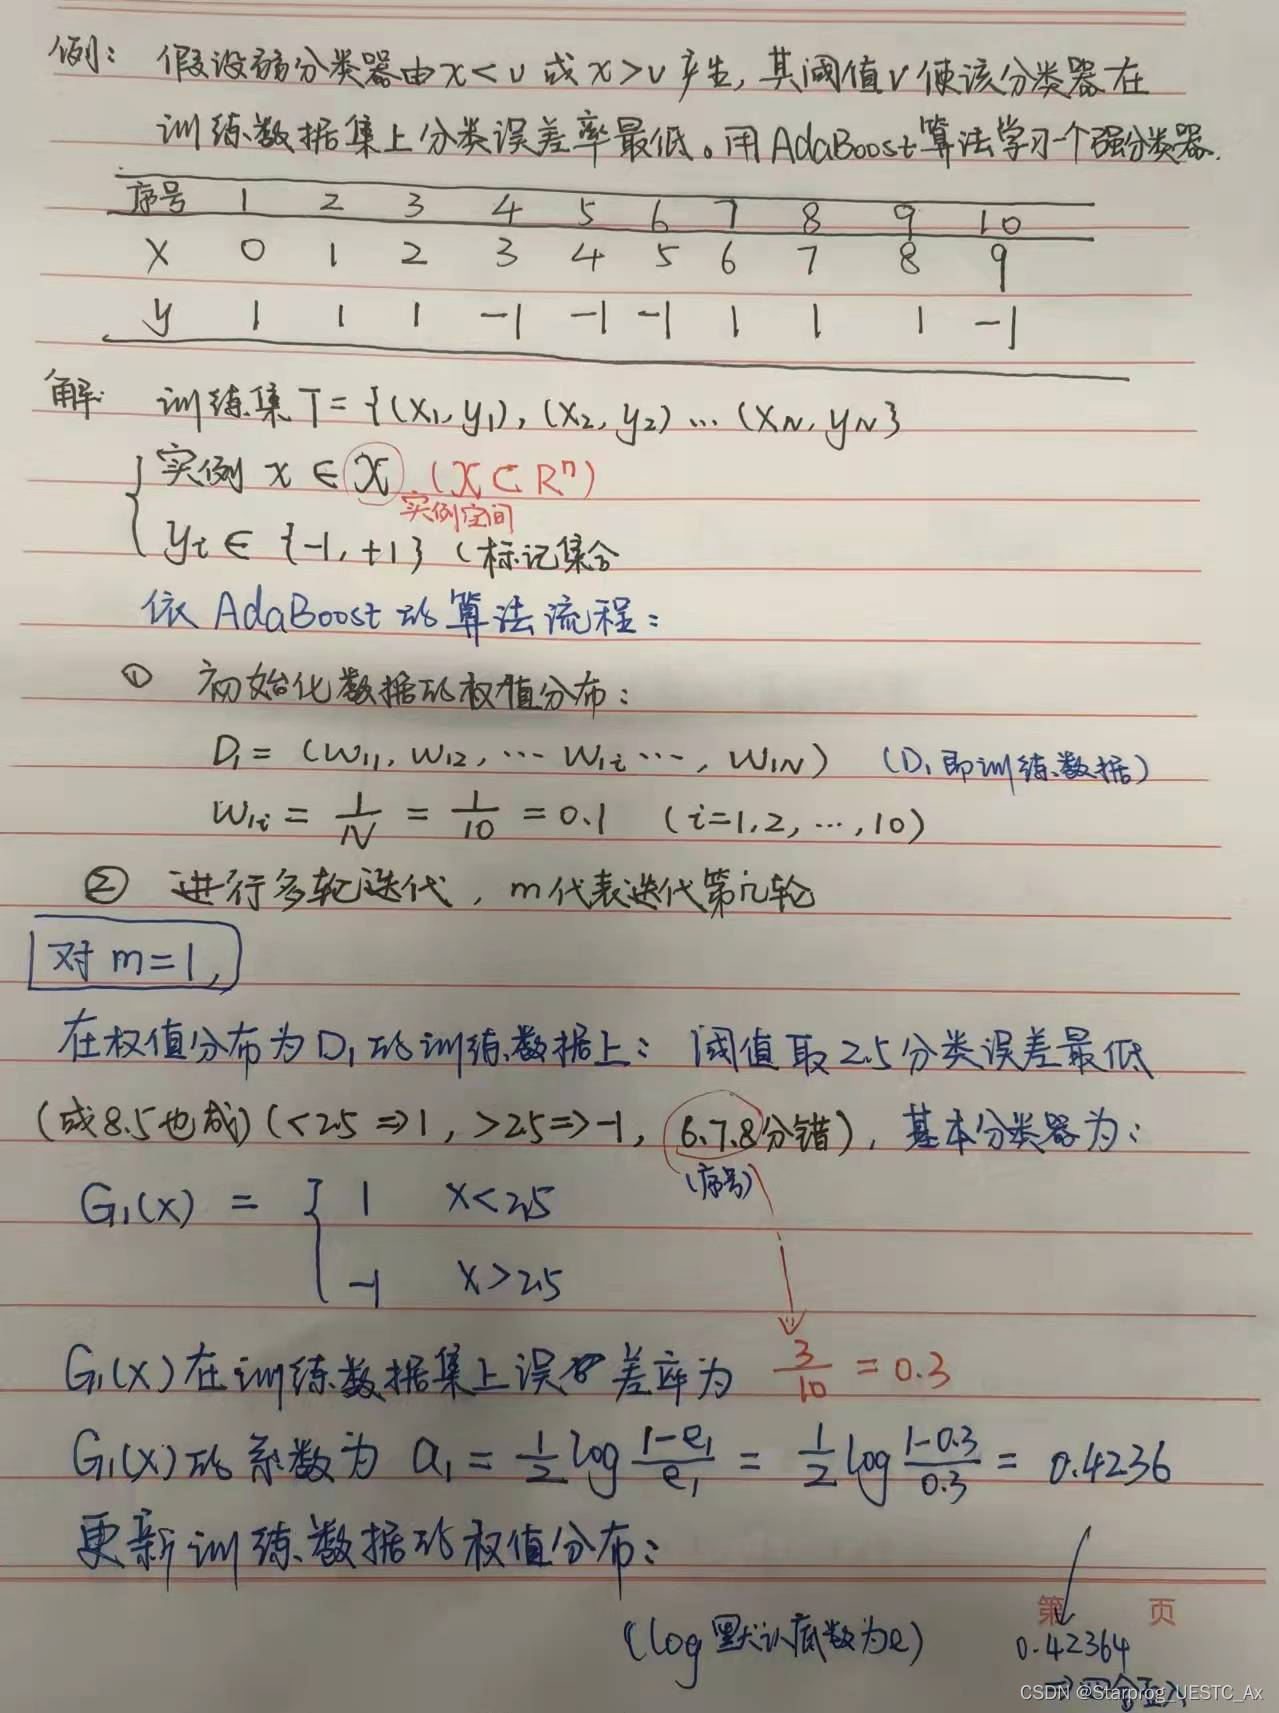 例: 假设弱分类器由x<v 或x>v产生,其阈值v使该分类器在
训练数据集上分类误差率最低。用AdaBoost算法学习一个强分类器.
序号 1 2 3 4 5 6 7 8 9 10
X 0 1 2 3 4 5 6 7 8 9
y 1 1 1 -1 -1 -1 1 1 1 -1
解: 训练集T={(x₁,y₁),(x₂,y₂)...(xN,yN}
实例 x∈X (X⊂Rⁿ)
实例空间
yi∈{-1,+1} (标记集合
依AdaBoost的算法流程:
① 初始化数据的权值分布:
D₁=(w₁₁,w₁₂,...w₁i...,w₁N) (D₁即训练数据)
w₁i = 1/N = 1/10 = 0.1 (i=1,2,...,10)
② 进行多轮迭代,m代表迭代第几轮
对 m=1,
在权值分布为D₁的训练数据上:阈值取2.5分类误差最低
(或8.5也成)(<2.5⇒1,>2.5⇒-1,6.7.8分错),基本分类器为:
(序号)
G₁(x) = { 1 x<2.5
-1 x>2.5
G₁(x)在训练数据集上误差率为 3/10 = 0.3
G₁(x)的系数为 a₁ = 1/2 log (1-e₁)/e₁ = 1/2 log (1-0.3)/0.3 = 0.4236
更新训练数据的权值分布:
第 页
(log默认底数为e)
0.42364
→四舍五入
CSDN @Starprog_UESTC_Ax